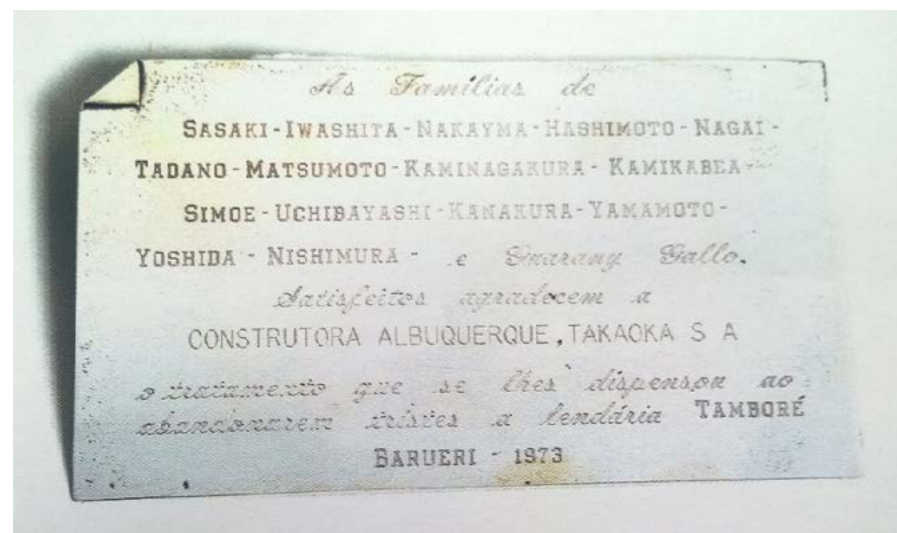 As Famílias de
SASAKI - IWASHITA - NAKAYMA - HASHIMOTO - NAGAI -
TADANO - MATSUMOTO - KAMINAGAKURA - KAMIKABEA -
SIMOE - UCHIBAYASHI - KANAKURA - YAMAMOTO -
YOSHIDA - NISHIMURA - e Guarany Gallo.
Satisfeitos agradecem a
CONSTRUTORA ALBUQUERQUE, TAKAOKA S A
o tratamento que se lhes dispensou ao
abandonarem tristes a lendária TAMBORÉ
BARUERI - 1973